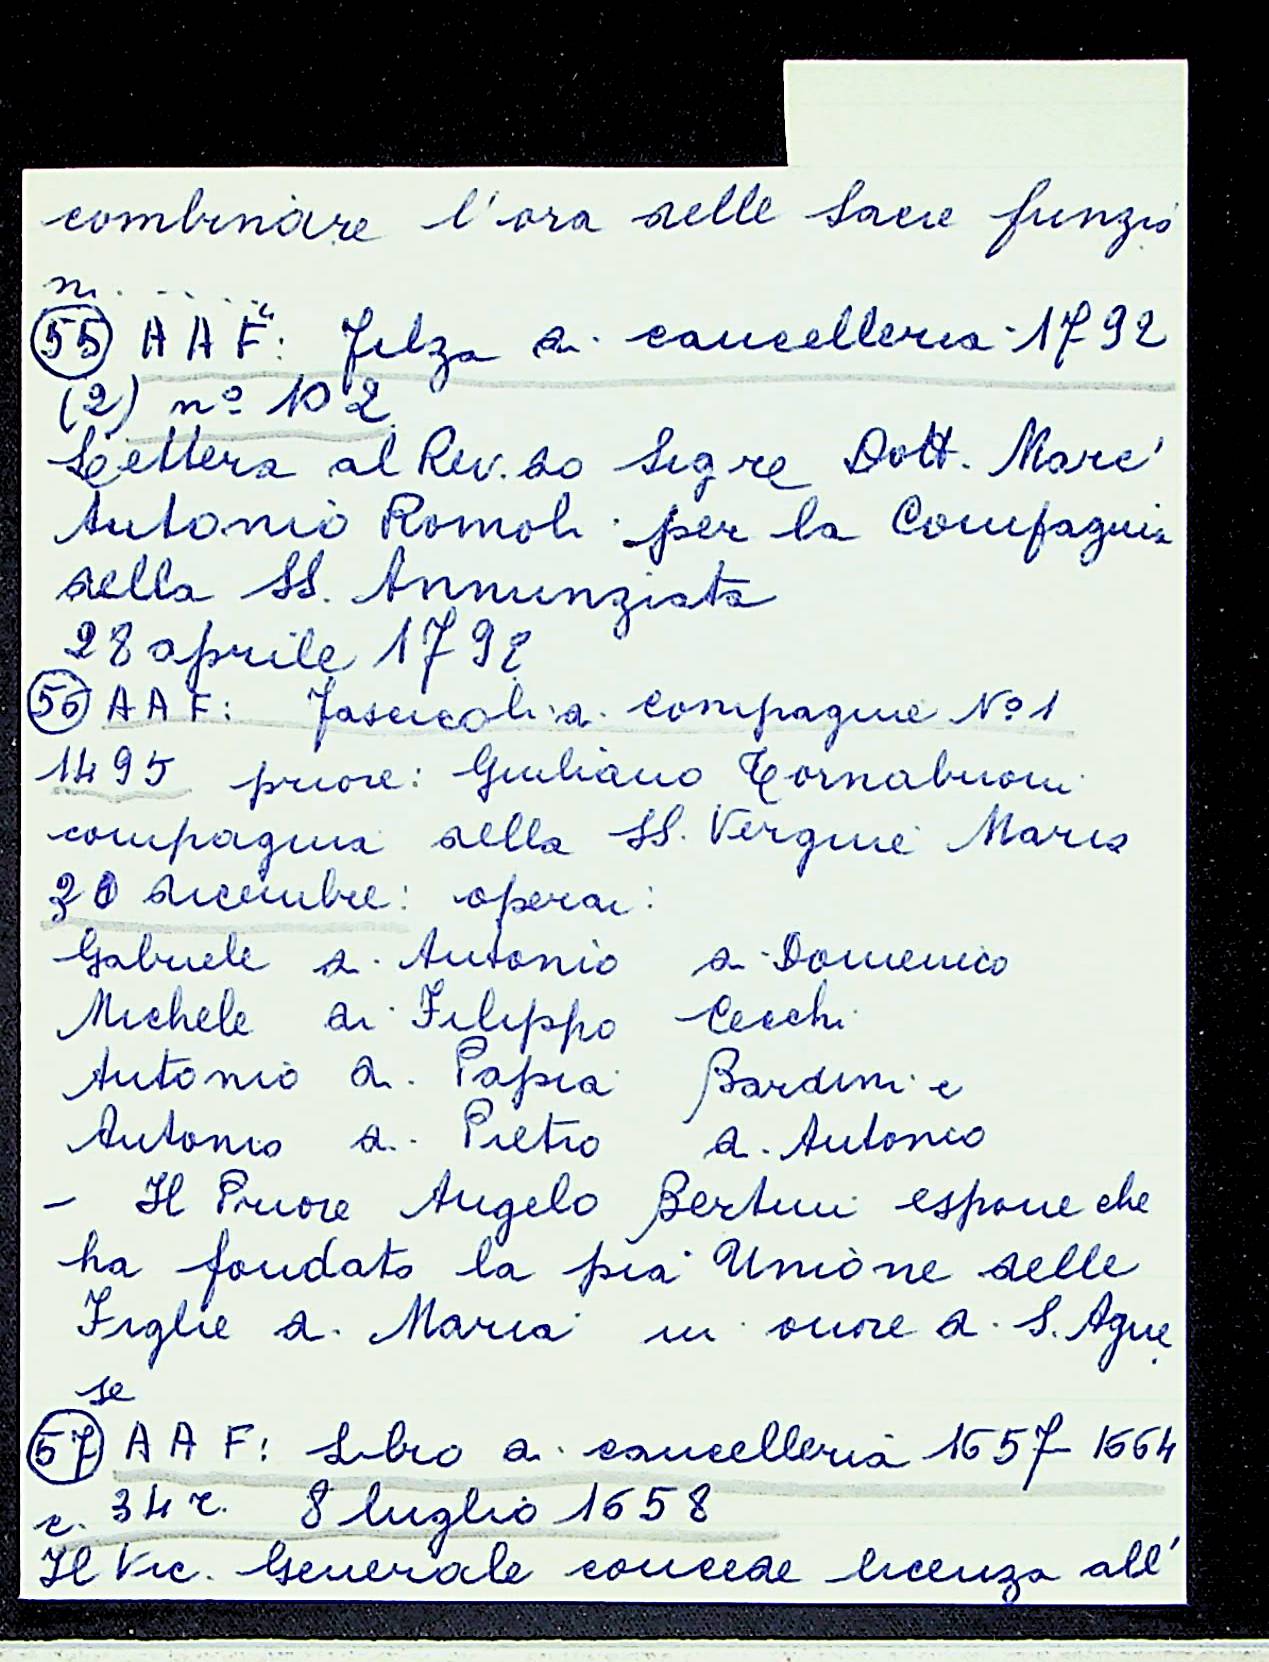 combinare l'ora delle Sacre funzio
ni. . . . . .
(55) AAF: Filza di cancelleria 1792
(2) nº 102
Lettera al Rev.do Sigre Dott. Marc'
Antonio Romoli per la Compagnia
della SS. Annunziata
28 aprile 1792
(56) AAF: Fascicoli di compagnie Nº 1
1495 priore: Giuliano Tornabuoni
compagnia della SS. Vergine Maria
20 dicembre: operai:
Gabriele di Antonio di Domenico
Michele di Filippo Cecchi
Antonio di Papia Bardini e
Antonio di Pietro di Antonio
- Il Priore Angelo Bertini espone che
ha fondato la pia Unione delle
Figlie di Maria in onore di S. Agne
se
(57) AAF: Libro di cancelleria 1657-1664
c. 34 r. 8 luglio 1658
Il Vic. Generale concede licenza all'